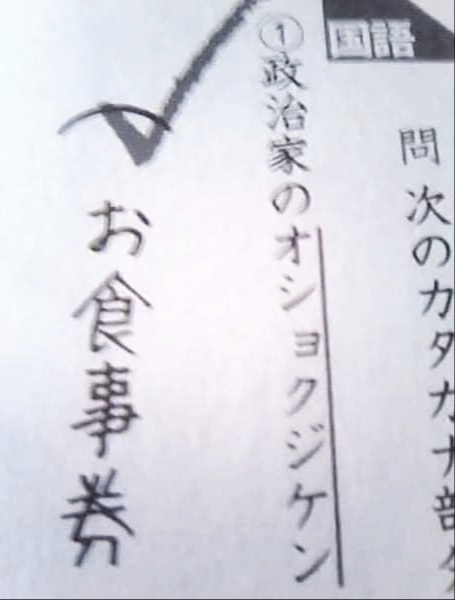 国語
問 次のカタカナ部
①政治家のオショクジケン
お食事券